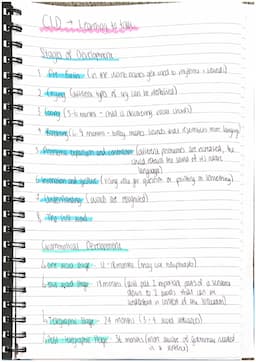 CLD → Learning to talk
Stages of Development
1. Pre-birth (in the womb babies get used to rhythms + sounds)
2. Crying (different types of cry can be identified)
3. Cooing (3-6 months - child is discovering vocal chords)
4. Babbling (6-9 months - baby makes sounds that resembles more language)
5. Phonemic expansion and contraction (different phonemes are increased, the
child reduces the sound of its native
language)
6. Intonation and gesture (rising voice for question or pointing at something)
7. Understanding (words are recognised)
8. The first word
Grammatical Development
↳ One word stage - 12-18 months (may use holophrases)
↳ Two word stage - 18 months (will put 2 important parts of a sentence
down to 2 words that can be
understood in context of the situation)
↳ Telegraphic Stage - 24 months (3-4 word utterances)
↳ Post-telegraphic Stage - 36 months (more aware of grammar needed
in a sentence)